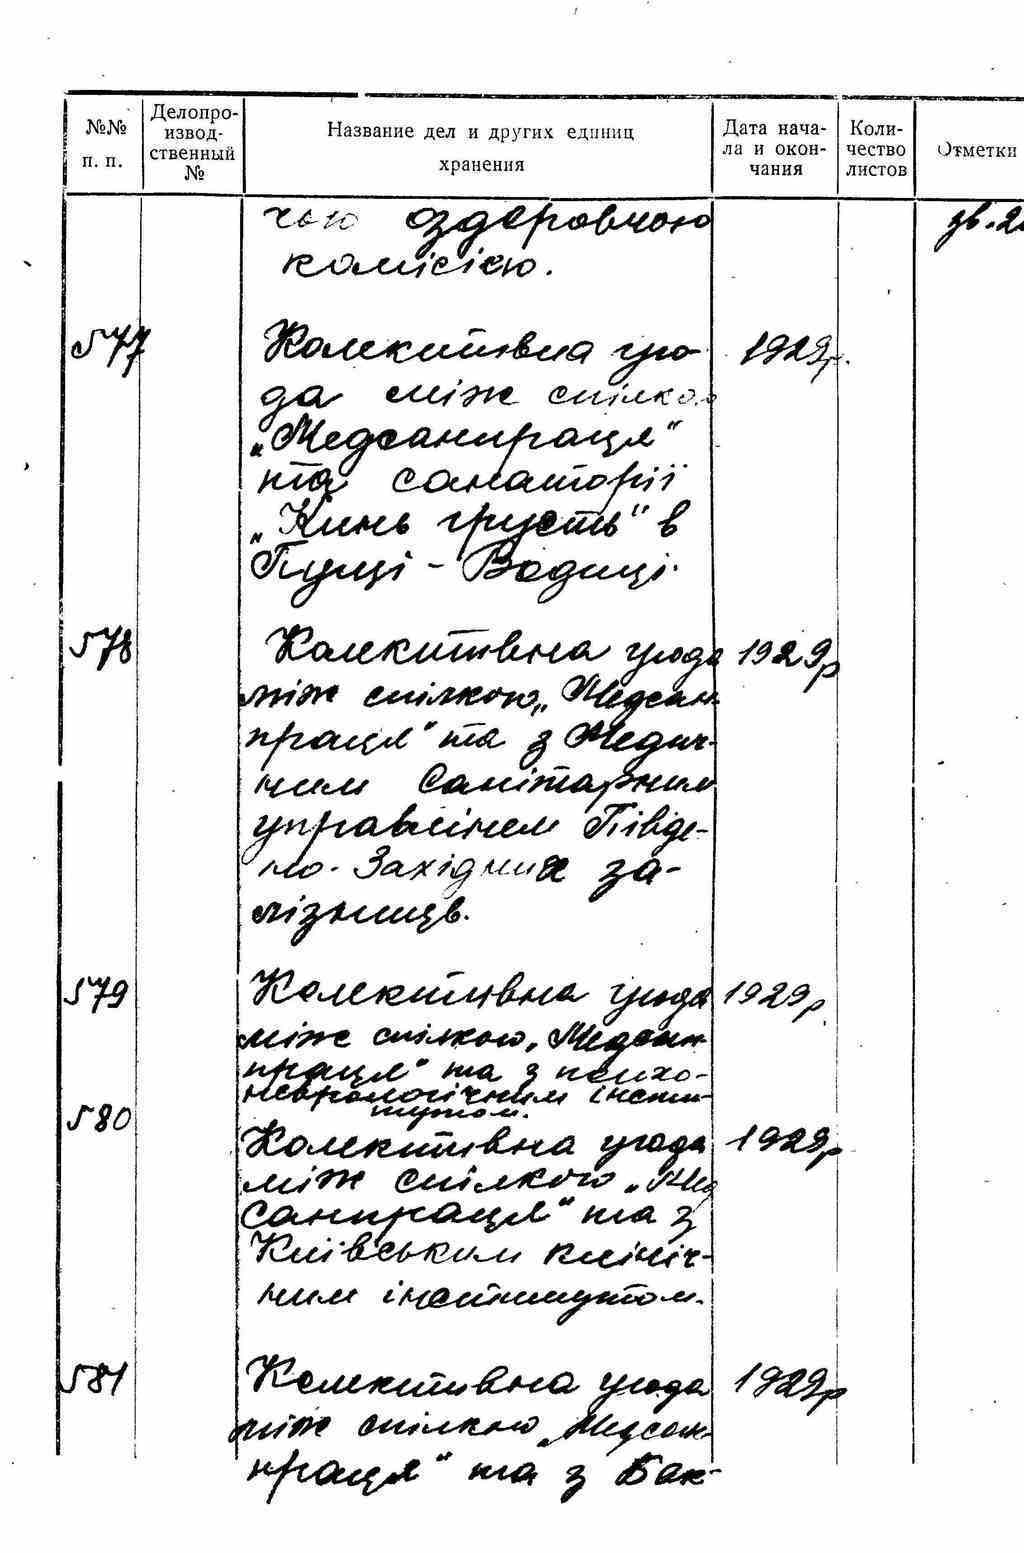 №№ п. п.
Делопроизводственный №
Название дел и других единиц хранения
Дата начала и окончания
Количество листов
Отметки
чью оздоровчою
комісією.
577 Колективна уго- 1929р.
да між спілкою
„Медсанпраця"
та санаторії
„Кинь грусть" в
Пущі-Водиці.
578 Колективна угода 1929р
між спілкою „Медсан-
праця" та з Медич-
ним Санітарним
управлінем Півде-
но-Західних за-
лізниць.
579 Колективна угода 1929р.
між спілкою „Медсан-
праця" та з психо-
неврологічним інсти-
тутом.
580 Колективна угода 1929р
між спілкою „Мед
санпраця" та з
Київським клініч-
ним інститутом.
581 Колективна угода 1929р
між спілкою „Медсан-
праця" та з Бак-